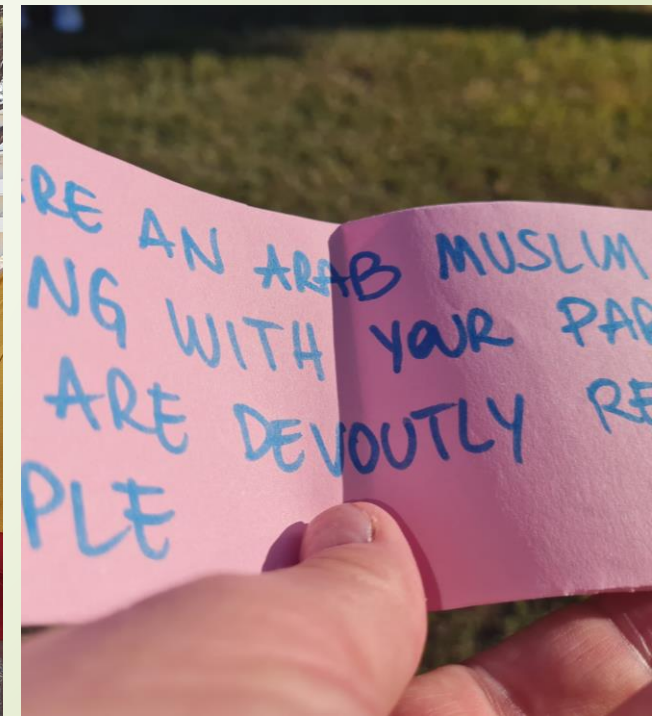 RE AN ARAB MUSLIM
NG WITH YOUR PAR
ARE DEVOUTLY RE
PLE